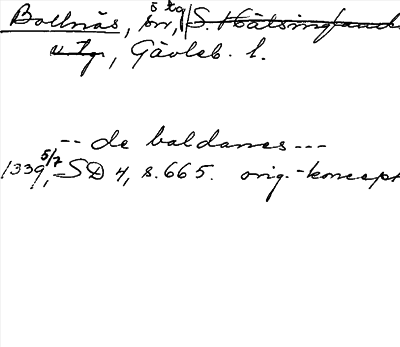 Bollnäs, sn, S. Hälsinglands
v tg, Gävleb. l.
-- de baldanes ---
1339 5/7, SD 4, s. 665. orig.-koncept